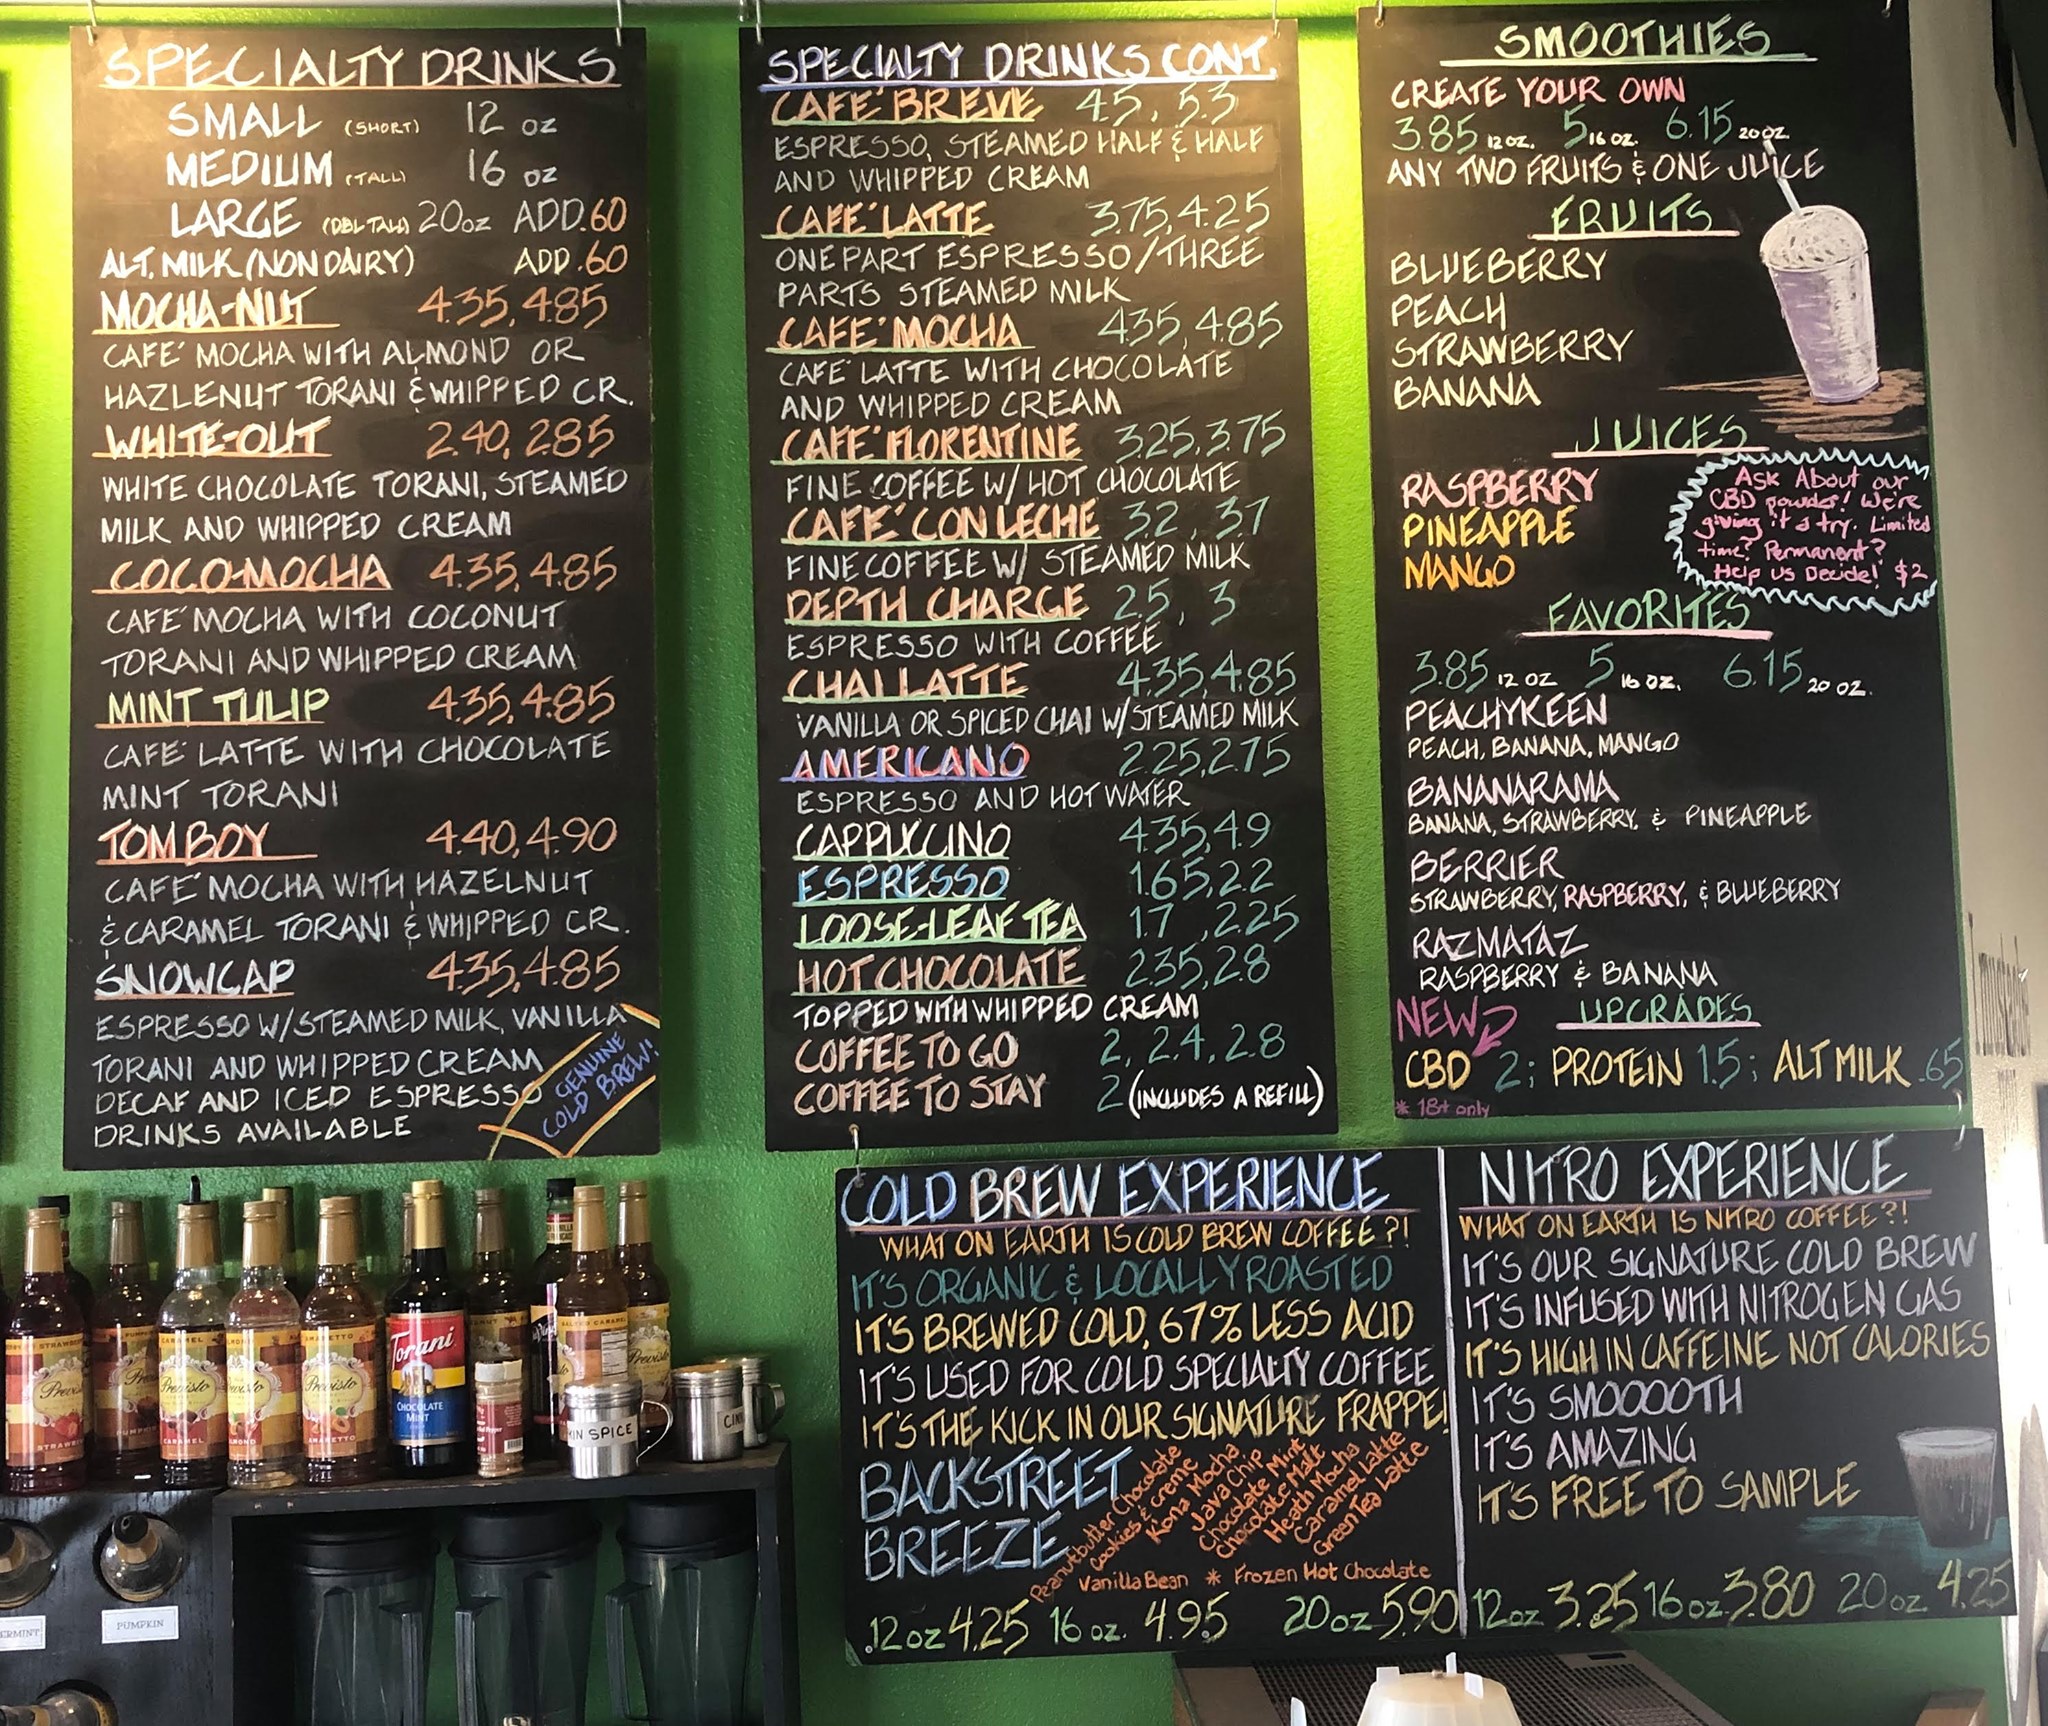 SPECIALTY DRINKS
SMALL (SHORT) 12 oz
MEDIUM (TALL) 16 oz
LARGE (DBL TALL) 20oz ADD .60
ALT. MILK (NON DAIRY) ADD .60
MOCHA-NUT 4.35, 4.85
CAFÉ MOCHA WITH ALMOND OR
HAZLENUT TORANI & WHIPPED CR.
WHITE-OUT 2.40, 2.85
WHITE CHOCOLATE TORANI, STEAMED
MILK AND WHIPPED CREAM
COCO-MOCHA 4.35, 4.85
CAFÉ MOCHA WITH COCONUT
TORANI AND WHIPPED CREAM
MINT TULIP 4.35, 4.85
CAFÉ LATTE WITH CHOCOLATE
MINT TORANI
TOMBOY 4.40, 4.90
CAFÉ MOCHA WITH HAZELNUT
& CARAMEL TORANI & WHIPPED CR.
SNOWCAP 4.35, 4.85
ESPRESSO W/STEAMED MILK, VANILLA
TORANI AND WHIPPED CREAM
DECAF AND ICED ESPRESSO
DRINKS AVAILABLE
GENUINE
COLD BREW!
SPECIALTY DRINKS CONT.
CAFÉ BREVE 4.5, 5.3
ESPRESSO, STEAMED HALF & HALF
AND WHIPPED CREAM
CAFÉ LATTE 3.75, 4.25
ONE PART ESPRESSO/THREE
PARTS STEAMED MILK
CAFÉ MOCHA 4.35, 4.85
CAFÉ LATTE WITH CHOCOLATE
AND WHIPPED CREAM
CAFÉ FLORENTINE 3.25, 3.75
FINE COFFEE W/ HOT CHOCOLATE
CAFÉ CON LECHE 3.2, 3.7
FINE COFFEE W/ STEAMED MILK
DEPTH CHARGE 2.5, 3
ESPRESSO WITH COFFEE
CHAI LATTE 4.35, 4.85
VANILLA OR SPICED CHAI W/STEAMED MILK
AMERICANO 2.25, 2.75
ESPRESSO AND HOT WATER
CAPPUCCINO 4.35, 4.9
ESPRESSO 1.65, 2.2
LOOSE-LEAF TEA 1.7, 2.25
HOT CHOCOLATE 2.35, 2.8
TOPPED WITH WHIPPED CREAM
COFFEE TO GO 2, 2.4, 2.8
COFFEE TO STAY 2 (INCLUDES A REFILL)
SMOOTHIES
CREATE YOUR OWN
3.85 12 OZ. 5 16 OZ. 6.15 20 OZ.
ANY TWO FRUITS & ONE JUICE
FRUITS
BLUEBERRY
PEACH
STRAWBERRY
BANANA
JUICES
RASPBERRY
PINEAPPLE
MANGO
Ask About our
CBD powder! We're
giving it a try. Limited
time? Permanent?
Help us Decide! $2
FAVORITES
3.85 12 OZ 5 16 OZ. 6.15 20 OZ.
PEACHYKEEN
PEACH, BANANA, MANGO
BANANARAMA
BANANA, STRAWBERRY, & PINEAPPLE
BERRIER
STRAWBERRY, RASPBERRY, & BLUEBERRY
RAZMATAZ
RASPBERRY & BANANA
NEW UPGRADES
CBD 2; PROTEIN 1.5; ALT MILK .65
* 18+ only
COLD BREW EXPERIENCE
WHAT ON EARTH IS COLD BREW COFFEE?!
IT'S ORGANIC & LOCALLY ROASTED
IT'S BREWED COLD, 67% LESS ACID
IT'S USED FOR COLD SPECIALTY COFFEE
IT'S THE KICK IN OUR SIGNATURE FRAPPE!
BACKSTREET
BREEZE
Peanutbutter Chocolate
Cookies & creme
Kona Mocha
Java Chip
Chocolate Mint
Chocolate Malt
Heath Mocha
Caramel Latte
Green Tea Latte
Vanilla Bean * Frozen Hot Chocolate
12 oz 4.25 16 oz. 4.95 20 oz 5.90
NITRO EXPERIENCE
WHAT ON EARTH IS NITRO COFFEE?!
IT'S OUR SIGNATURE COLD BREW
IT'S INFUSED WITH NITROGEN GAS
IT'S HIGH IN CAFFEINE NOT CALORIES
IT'S SMOOOOTH
IT'S AMAZING
IT'S FREE TO SAMPLE
12oz 3.25 16oz. 3.80 20oz. 4.25
STRAWB
Previsto
CARAMEL
Previsto
CARAMEL
Previsto
AMARETTO
Previsto
AMARETTO
Torani
CHOCOLATE
MINT
SALTED CARAMEL
Previsto
KIN SPICE
CIN
ERMINT
PUMPKIN